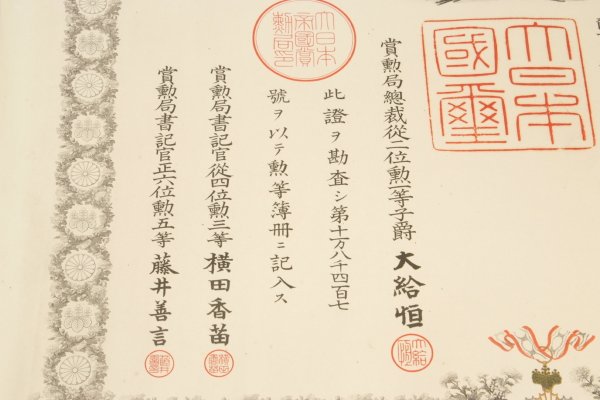 大日本國璽
賞勲局總裁從二位勲一等子爵 大給恒
大日本帝國賞勲局印
此證ヲ勘査シ第十万八千四百七
號ヲ以テ勲等簿册ニ記入ス
賞勲局書記官從四位勲三等 横田香苗
賞勲局書記官正六位勲五等 藤井善言